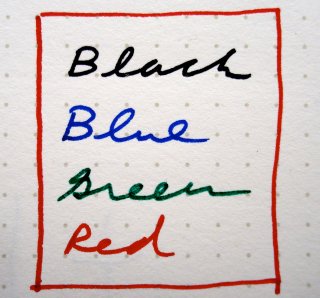 Black
Blue
Green
Red